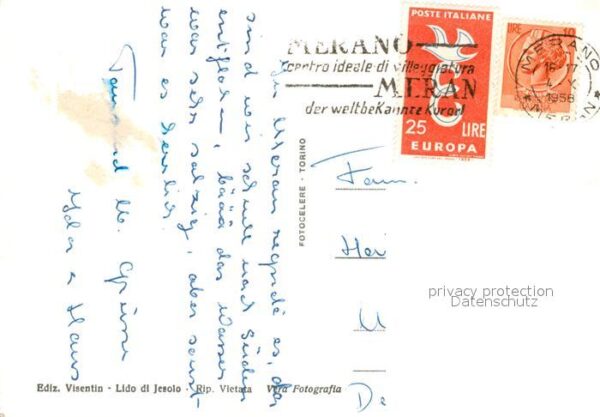 POSTE ITALIANE
25 LIRE
EUROPA
LIRE 10
MERANO
centro ideale di villeggiatura
MERAN
der weltbekannte Kurort
MERANO
1958
MERAN
In Meran regnete es, da
sind wir schnell nach Süden
entflohen, bäää das Wasser
war sehr salzig, aber sonst
war es herrlich.
Tausend lb. Grüsse
Hans
FOTOCELERE - TORINO
Fam.
Her
U
De
privacy protection
Datenschutz
Ediz. Visentin - Lido di Jesolo - Rip. Vietata Vera Fotografia